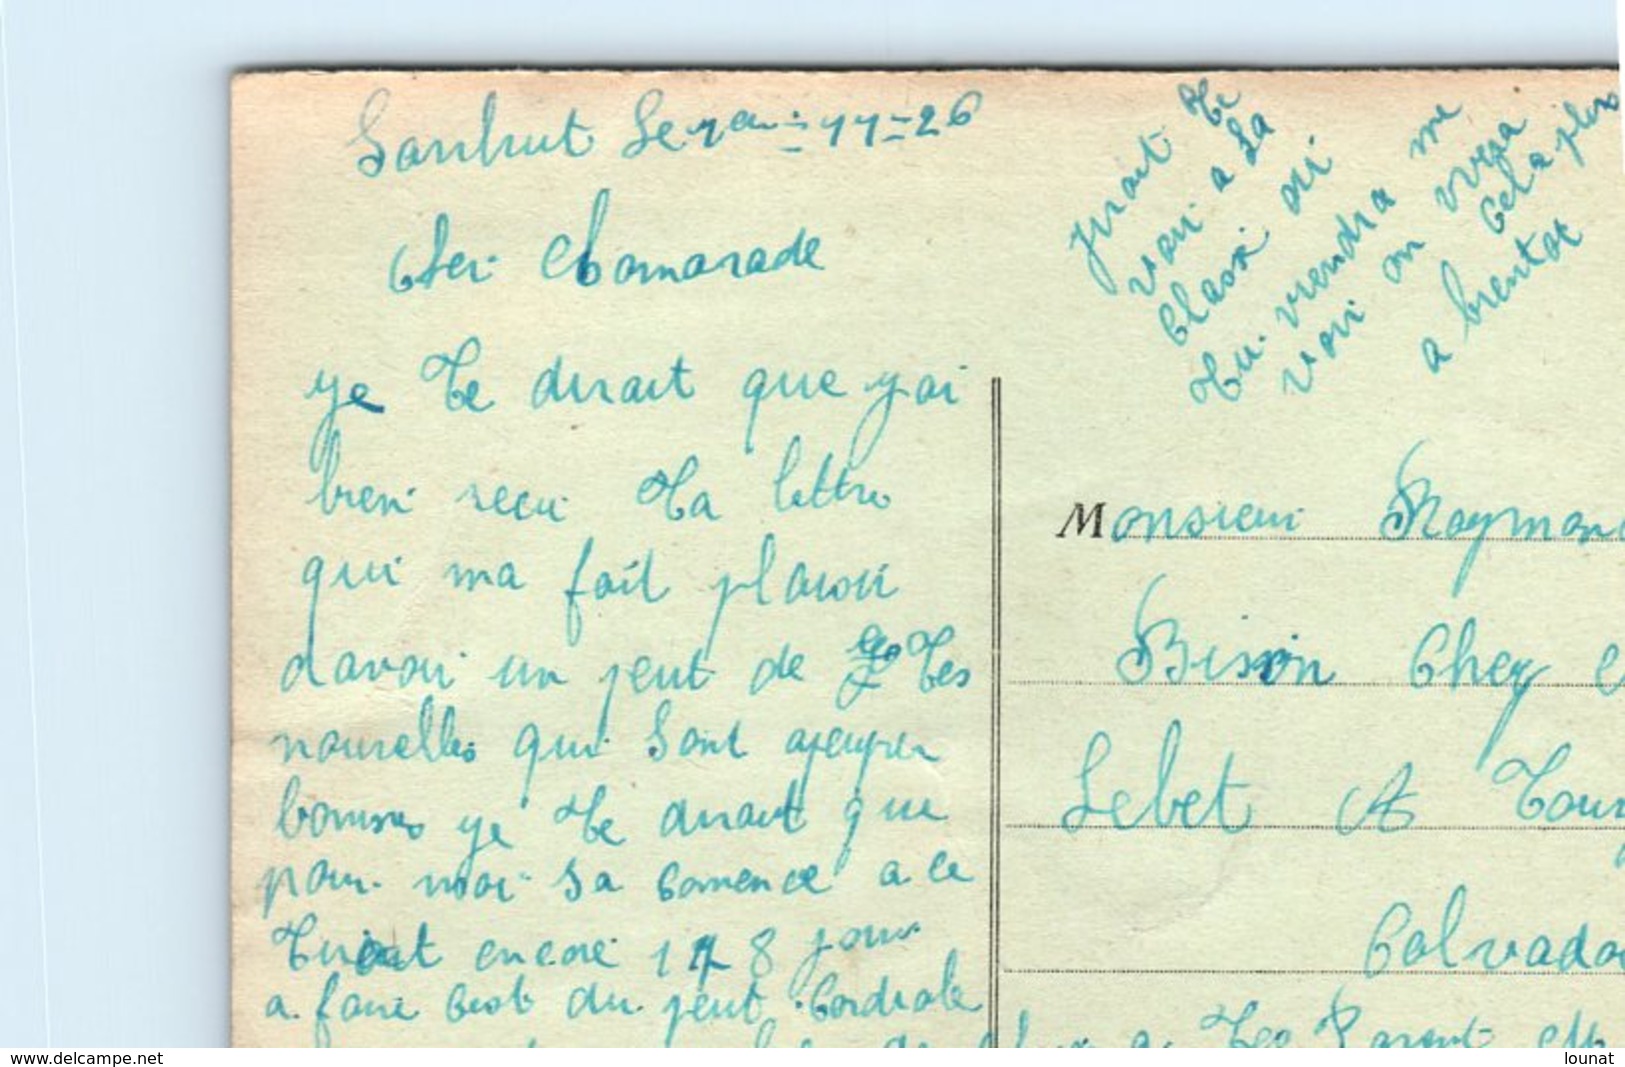 Le 11-26
Cher Chamarade
ye Te dirait que y ai
bien recu Ta lettre
qui ma fait plaisir
davoir un peut de Tes
nouvelles qui sont apeupres
bonnes ye Te dirait que
pour moi sa comence a ce
Tirait encore 178 jours
a faire cest du peut Cordiale
a Tes Parents et
yrait Te
voir a La
Classe ou
Tu viendra me
voir on vera
Cela plus
a bientot
Monsieur Raymon
Bisson Chez
Lebet A Tour
Calvados
delcampe.net
lounat